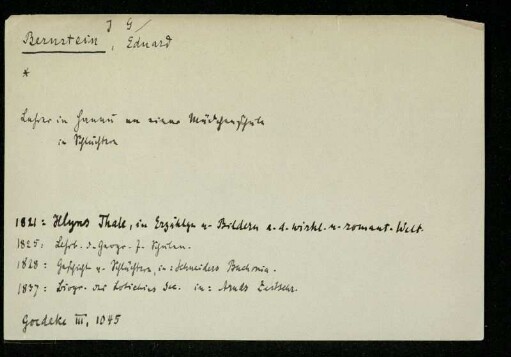 J G/
Bernstein, Eduard
*
Lehrer in Hanau an einer Mädchenschule
in Schlüchtern
1821: Thale, in Erzählgn u. Bildern a. d. wirkl. u. romant. Welt.
1825: Lehrb. d. Geogr. f. Schulen.
1828: Geschichte v. Schlüchtern, in: Schneiders Buchonia.
1837: Biogr. des Lotichius Sec. in: Arnds Zeitschr.
Goedeke III, 1045